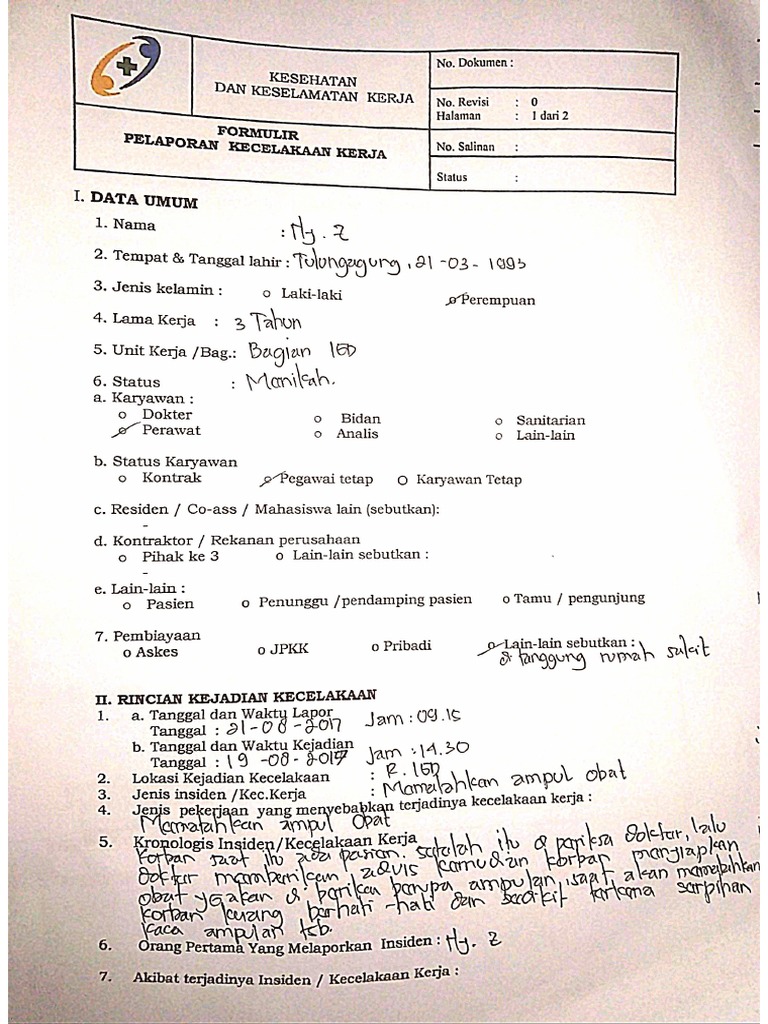 KESEHATAN
DAN KESELAMATAN KERJA
FORMULIR
PELAPORAN KECELAKAAN KERJA
No. Dokumen :
No. Revisi : 0
Halaman : 1 dari 2
No. Salinan :
Status :
I. DATA UMUM
1. Nama : Ny. Z
2. Tempat & Tanggal lahir : Tulungagung, 21-03-1993
3. Jenis kelamin : o Laki-laki o Perempuan
4. Lama Kerja : 3 Tahun
5. Unit Kerja /Bag.: Bagian IGD
6. Status : Menikah.
a. Karyawan :
o Dokter o Bidan o Sanitarian
o Perawat o Analis o Lain-lain
b. Status Karyawan
o Kontrak o Pegawai tetap o Karyawan Tetap
c. Residen / Co-ass / Mahasiswa lain (sebutkan):
-
d. Kontraktor / Rekanan perusahaan
o Pihak ke 3 o Lain-lain sebutkan :
-
e. Lain-lain :
o Pasien o Penunggu /pendamping pasien o Tamu / pengunjung
7. Pembiayaan
o Askes o JPKK o Pribadi o Lain-lain sebutkan :
di tanggung rumah sakit
II. RINCIAN KEJADIAN KECELAKAAN
1. a. Tanggal dan Waktu Lapor
Tanggal : 21-08-2017 Jam : 09.15
b. Tanggal dan Waktu Kejadian
Tanggal : 19-08-2017 Jam : 14.30
2. Lokasi Kejadian Kecelakaan : R. IGD
3. Jenis insiden /Kec.Kerja : Mematahkan ampul obat
4. Jenis pekerjaan yang menyebabkan terjadinya kecelakaan kerja :
Mematahkan ampul obat
5. Kronologis Insiden/Kecelakaan Kerja
Korban saat itu ada pasien. setelah itu di periksa dokter, lalu
dokter memberikan advis kemudian korban menyiapkan
obat yg akan di berikan berupa ampulan, saat akan mematahkan
korban kurang berhati-hati dan sedikit terkena serpihan
kaca ampulan tsb.
6. Orang Pertama Yang Melaporkan Insiden : Ny. Z
7. Akibat terjadinya Insiden / Kecelakaan Kerja :